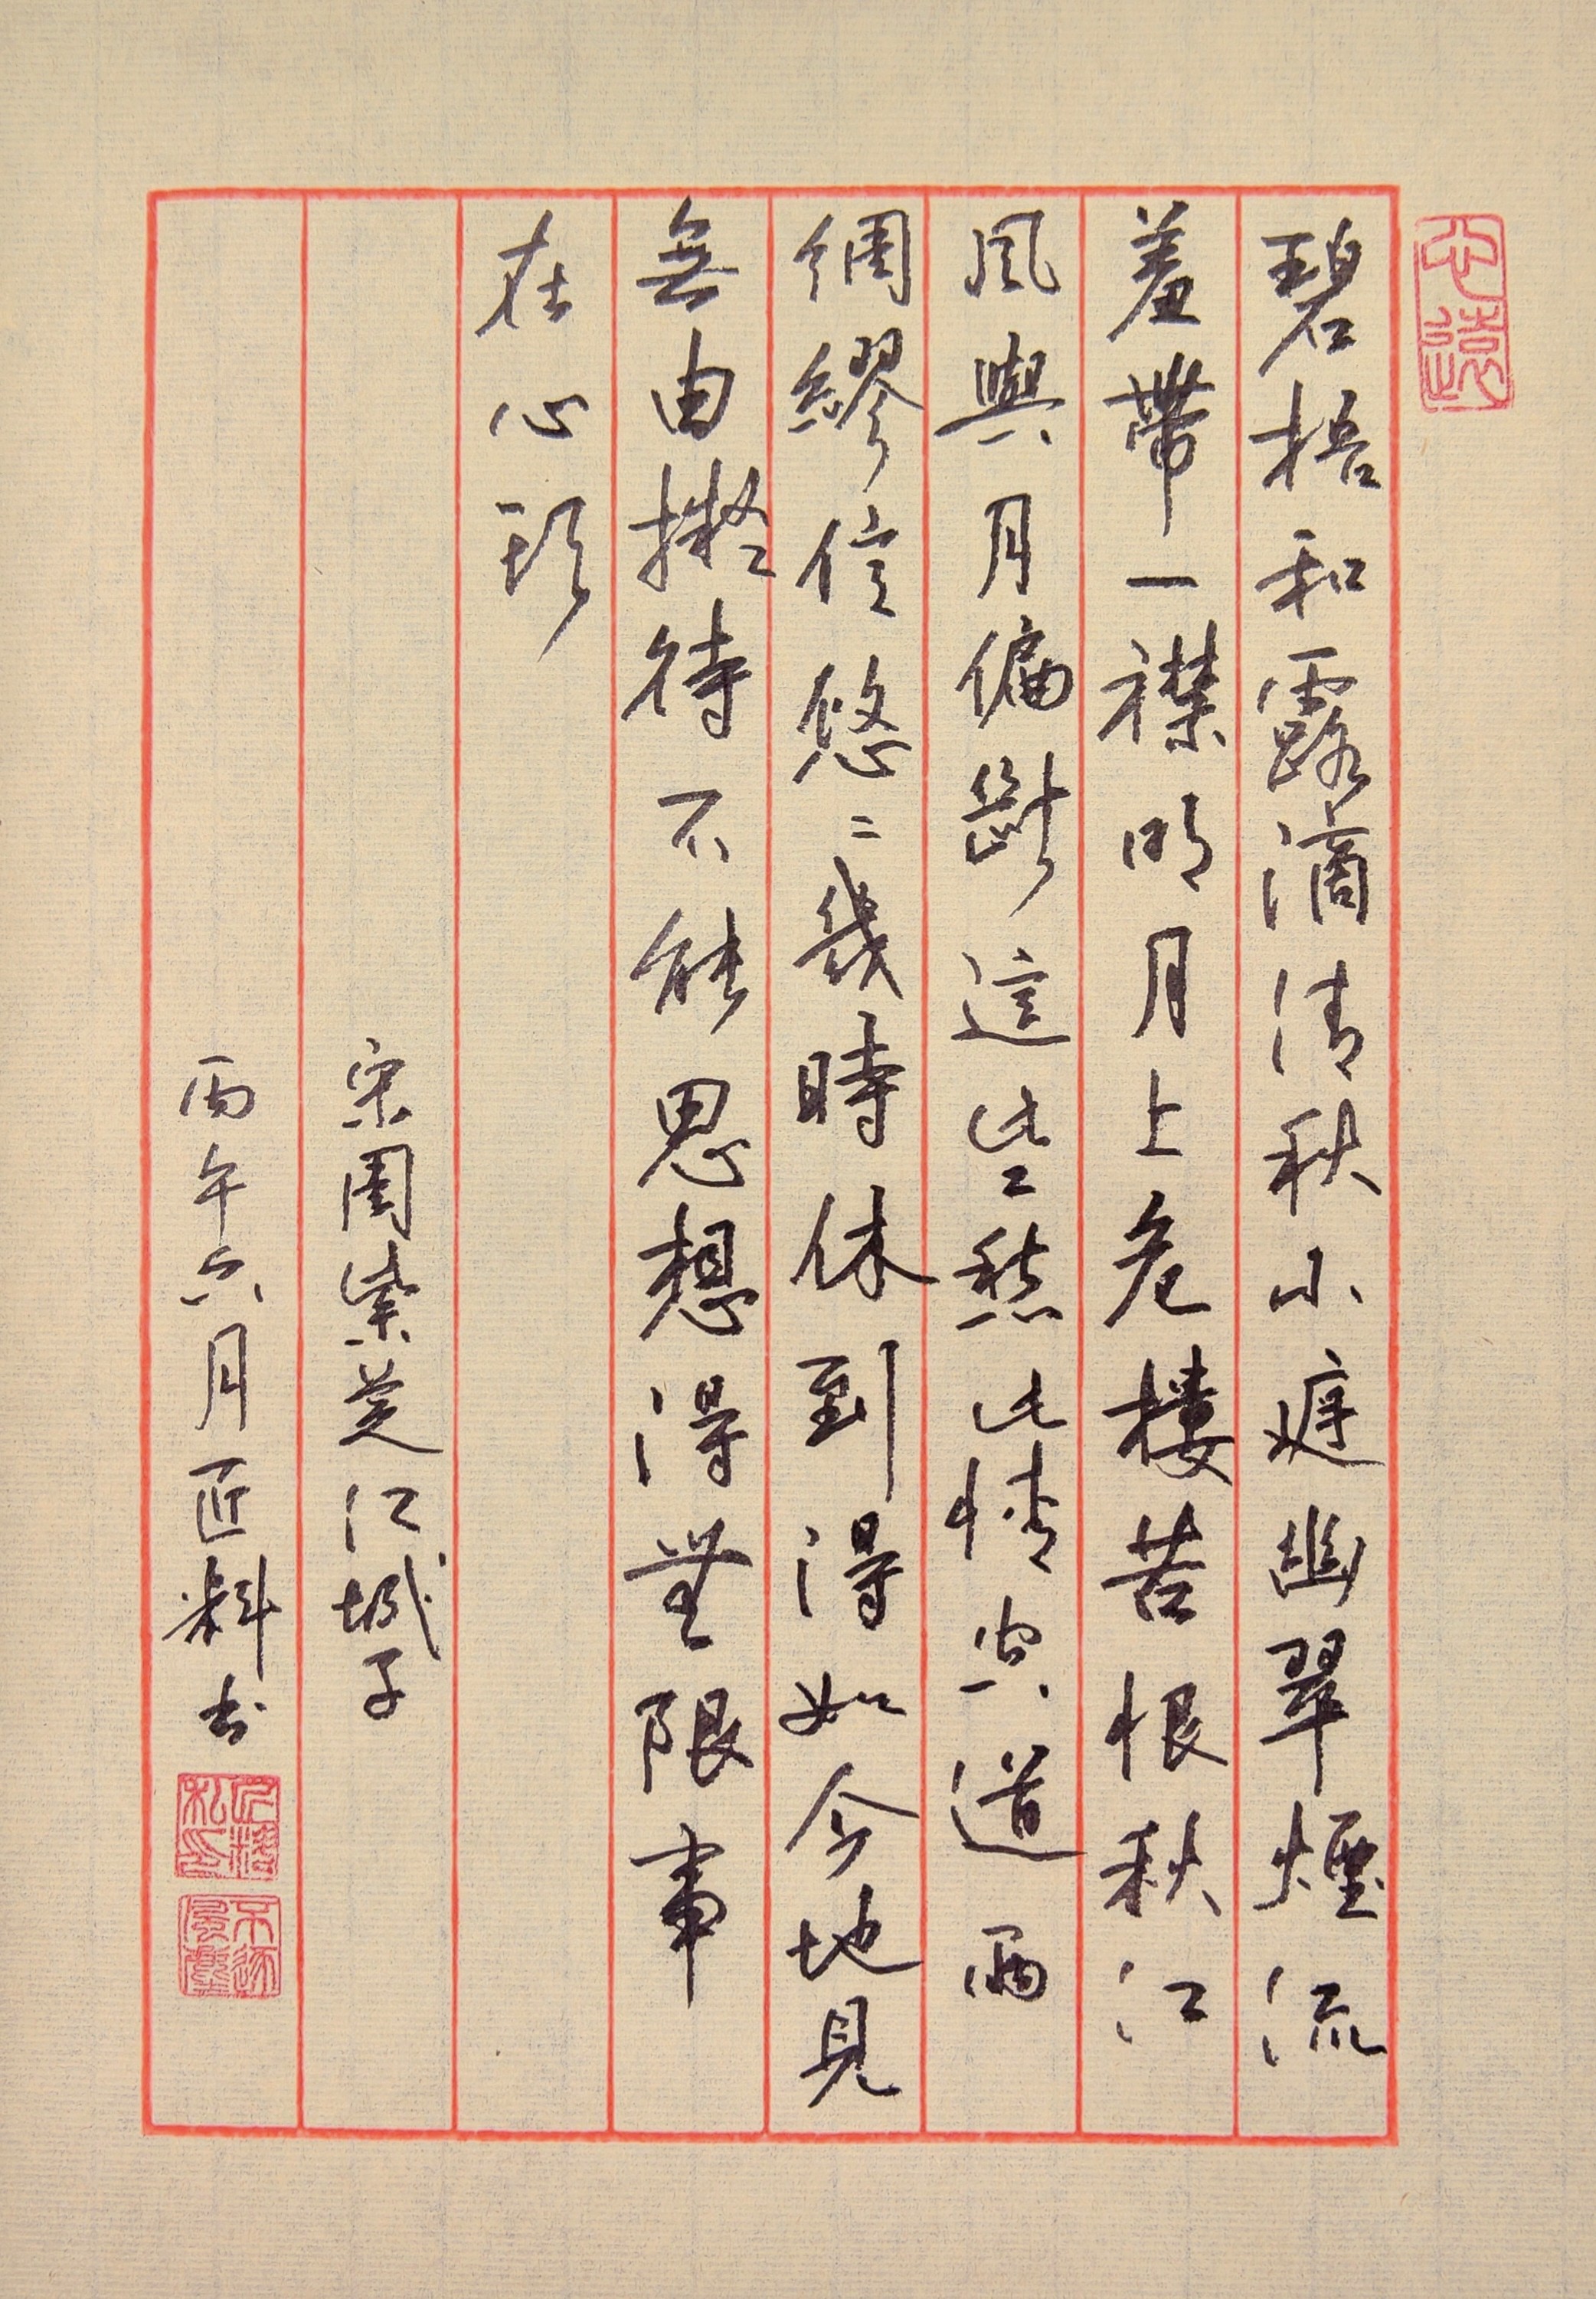 心遠
碧梧和露滴清秋小庭幽翠煙流
羞帶一襟明月上危樓苦恨秋江
風與月偏斷這些愁此情空道兩
綢繆信悠〻幾時休到得如今地見
無由擬待不能思想得無限事
在心頭
宋周紫芝江城子
丙午六月匠料書
匠料私印